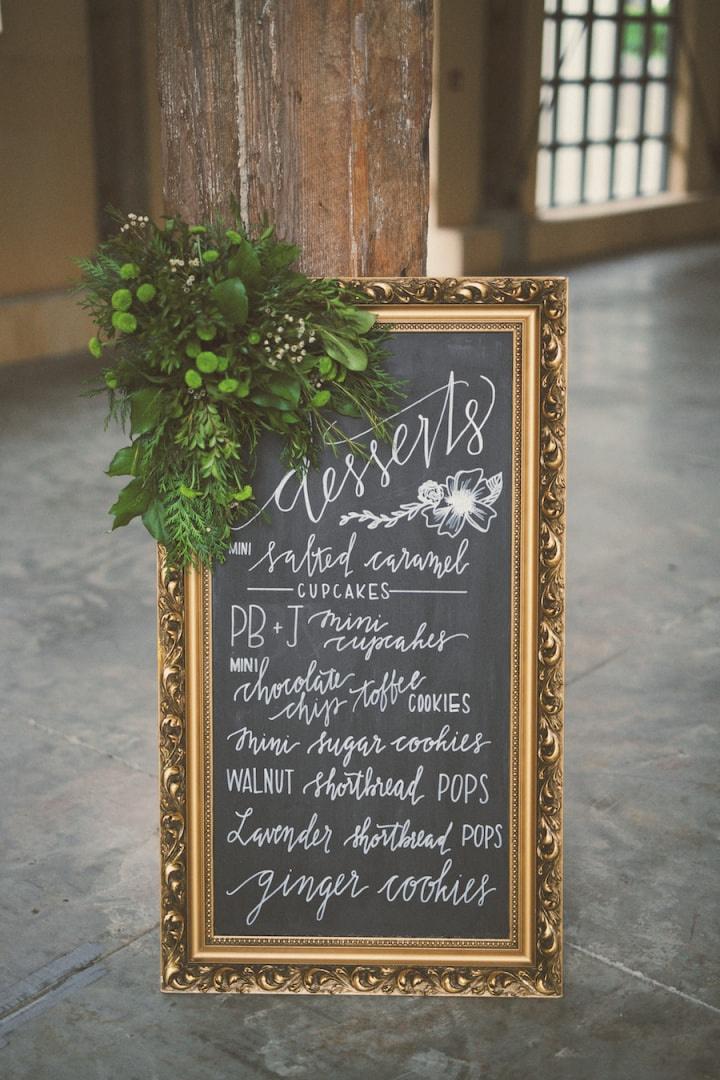 desserts
MINI salted caramel
CUPCAKES
PB + J mini cupcakes
MINI chocolate chip toffee COOKIES
mini sugar cookies
WALNUT shortbread POPS
Lavender shortbread POPS
ginger cookies